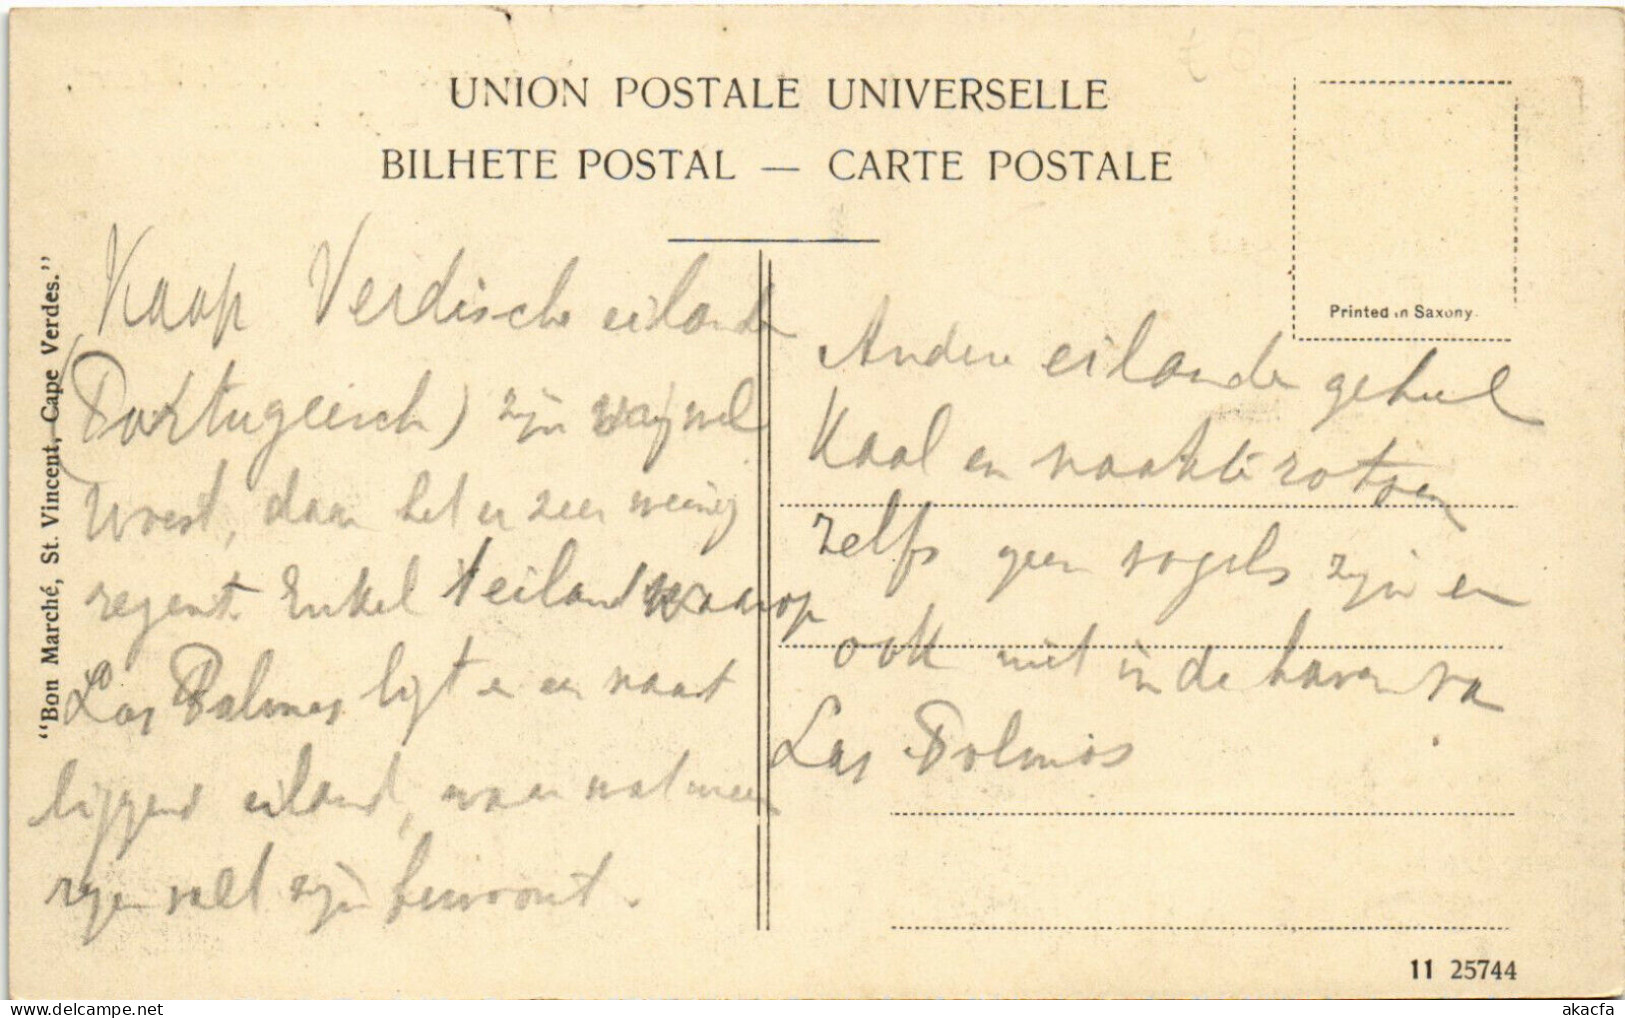 UNION POSTALE UNIVERSELLE
BILHETE POSTAL — CARTE POSTALE
Printed in Saxony.
"Bon Marché, St. Vincent, Cape Verdes."
Kaap Verdische eilanden
Portugeesch) zijn vrijwel
woest, daar het er zeer weinig
regent. Enkel 't eiland waarop
Las Palmas ligt en een naast
liggend eiland, waar wat meer
regen valt zijn bewoont.
Andere eilanden geheel
Kaal en naakte rotsen
zelfs geen vogels zijn er
ook niet in de haven va
Las Polmos
11 25744
akacfa